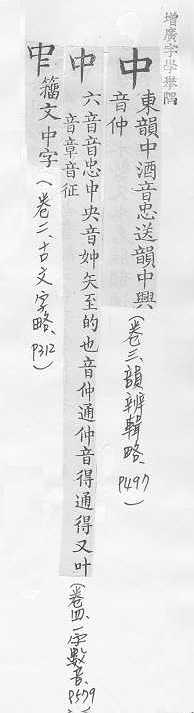 增廣字學舉隅
中 東韻中酒音忠送韻中興音仲(卷三、韻辨輯略、P497)
中 六音音忠中央音妕矢至的也音仲通仲音得通得又叶音章音征(卷四、一字數音、P579
𠁩 籀文中字(卷二、古文字略、P312)